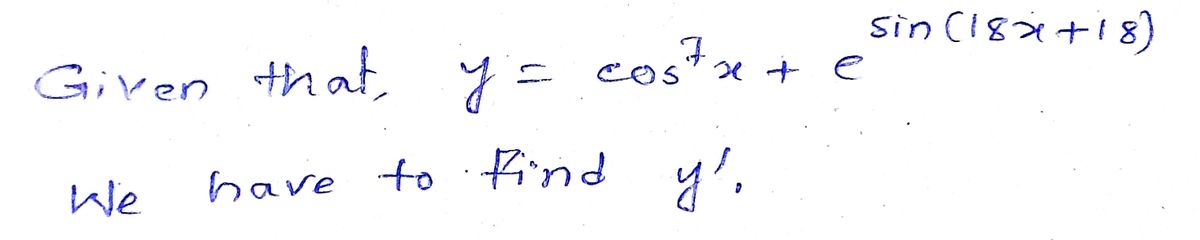 Given that, y = cos⁷x + e^sin(18x+18)
We have to find y'.